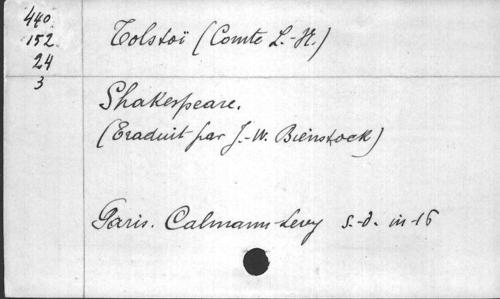 440.
152.
24
3
Tolstoï (Comte L.-N.)
Shakespeare.
(Traduit par J.-W. Bienstock)
Paris. Calmann-Levy s.-d. in-16